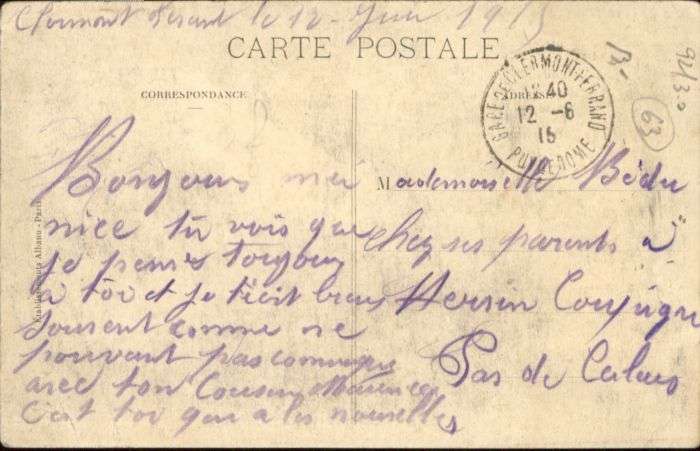 Clermont Ferant le 12 Juin 1915
CARTE POSTALE
CORRESPONDANCE
ADRESSE
GARE DE CLERMONT-FERRAND
40
12 -6
15
PUY-DE-DOME
63
Etablissements Albano - Paris
Bonjour ma
nice tu vois que
je pense toujour
à toi et je técit bien
souvent comme ne
pouvant pas
avec ton Cousin
C'est toi qui a les nouvelles
Mademoiselle Bédu
chez ses parents à
Hersin Coupigny
Pas de Calais